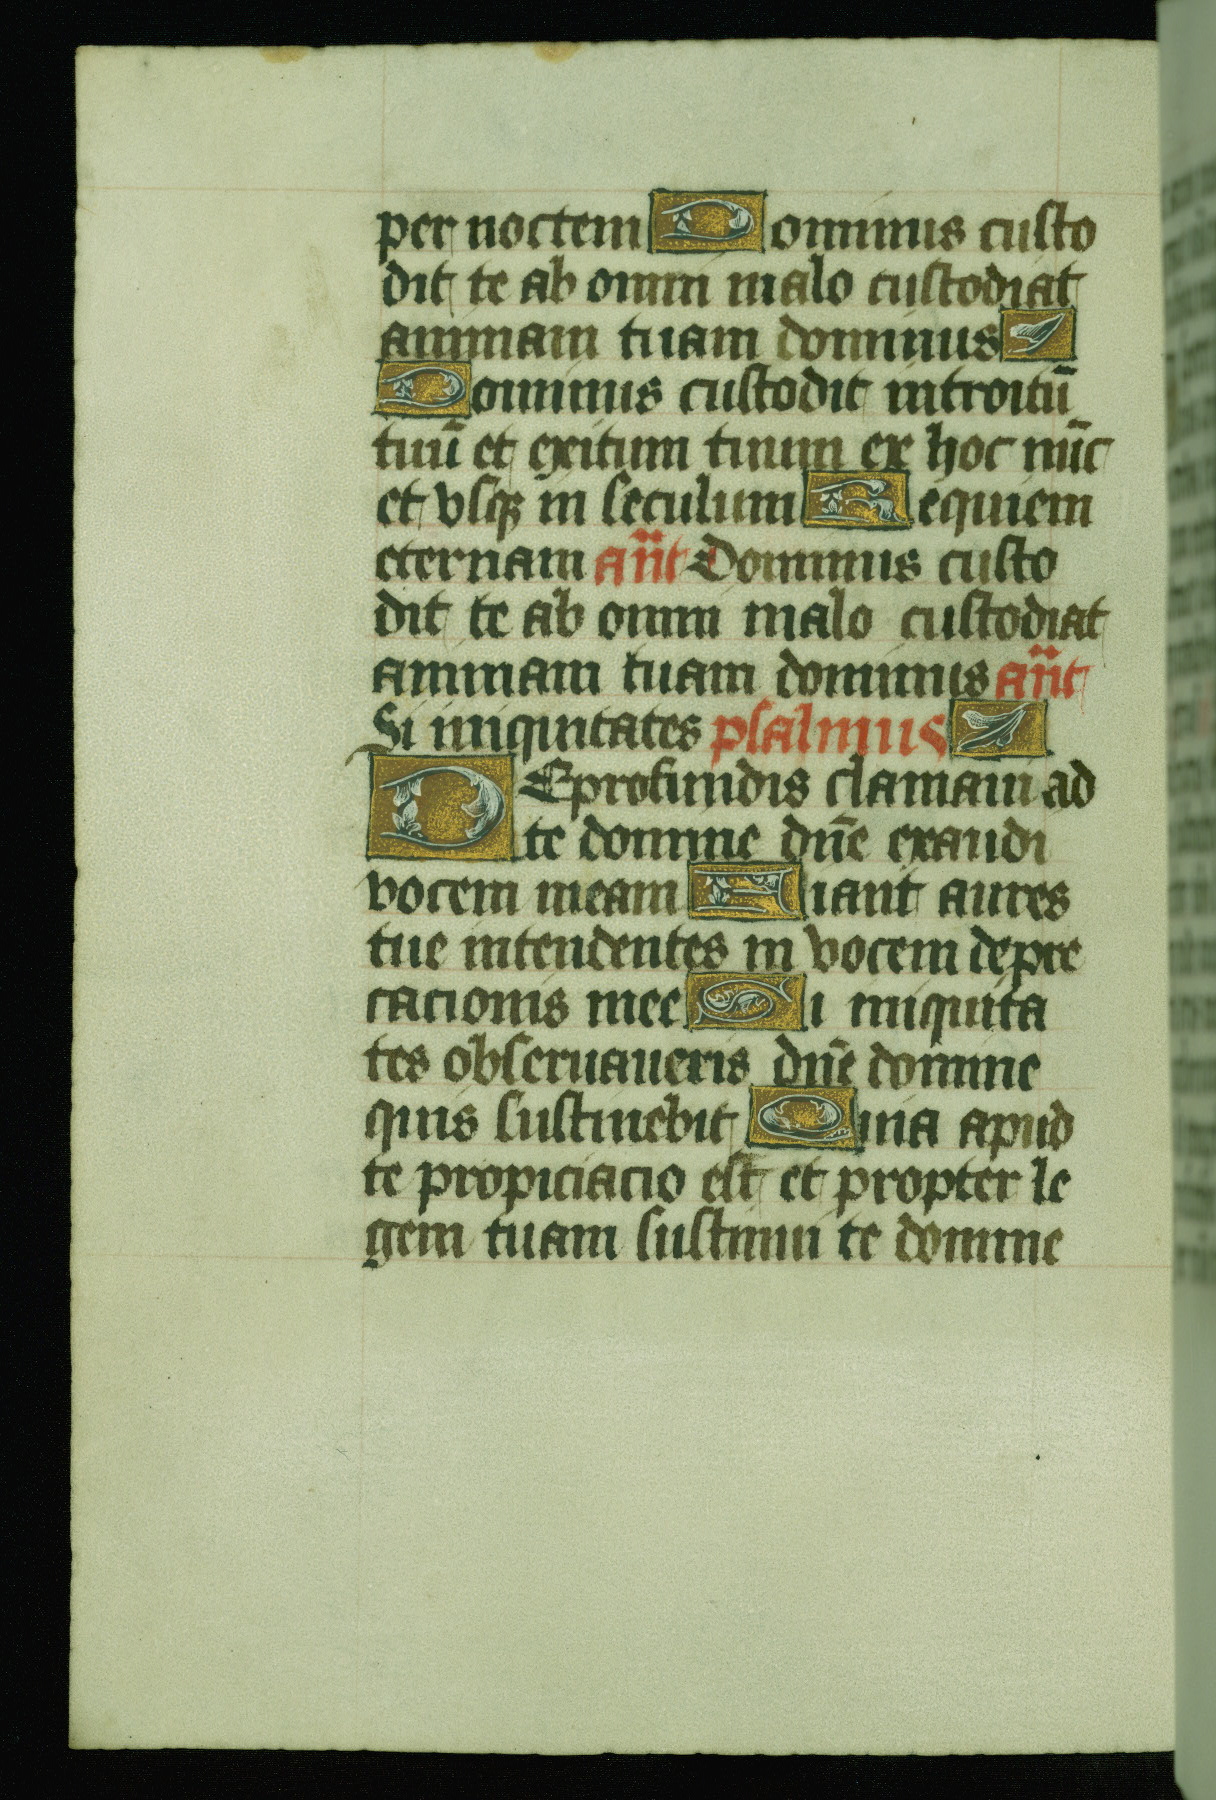 per noctem Dominus custo
dit te ab omni malo custodiat
animam tuam dominus
Dominus custodit introitū
tuū et exitum tuum ex hoc nūc
et vsqꝫ in seculum Requiem
eternam an̄t Dominus custo
dit te ab omni malo custodiat
animam tuam dominus an̄t
Si iniquitates psalmus
DE profundis clamaui ad
te domine dn̄e exaudi
vocem meam Fiant aures
tue intendentes in vocem depre
cacionis mee Si iniquita
tes obseruaueris dn̄e domine
quis sustinebit Quia apud
te propiciacio est et propter le
gem tuam sustinui te domine